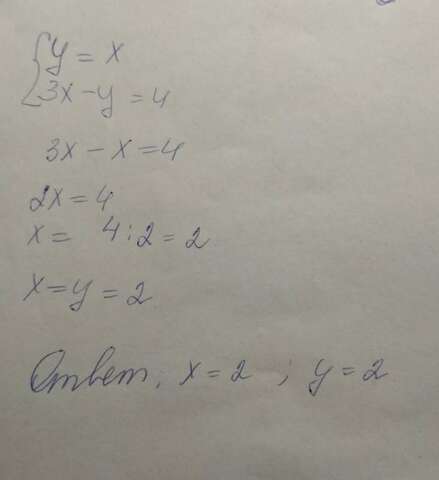 {y = x
3x - y = 4
3x - x = 4
2x = 4
x = 4 : 2 = 2
x = y = 2
Ответ. x = 2 ; y = 2